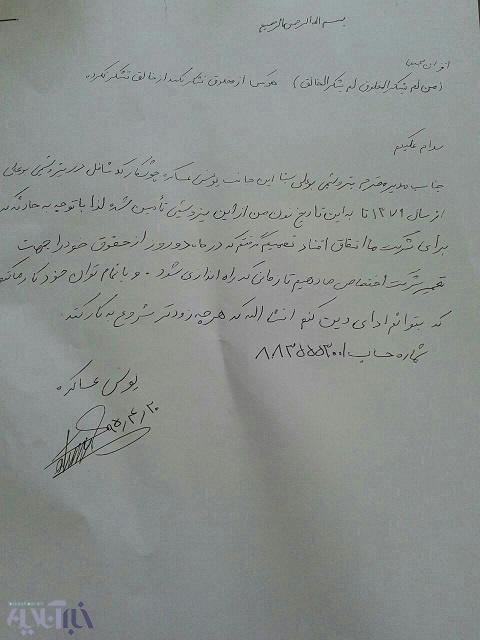 بسم الله الرحمن الرحیم
(من لم یشکر المخلوق لم یشکر الخالق) هرکس از مخلوق تشکر نکند از خالق تشکر نکرده
سلام علیکم
جناب مدیر محترم پتروشیمی بوعلی سینا این جانب یونس عساکره جوشکار که شاغل در پتروشیمی بوعلی
از سال ۱۳۷۹ تا به این تاریخ نون من از این پتروشیمی تأمین شده لذا با توجه به حادثه که
برای شرکت ما اتفاق افتاد تصمیم گرفتم که در ماه دو روز از حقوق خود را جهت
تعمیر شرکت اختصاص بدهیم تا زمانی که راه اندازی شود . و با تمام توان خود کار میکنم
که بتوانم ادای دین کنم انشا الله که هرچه زودتر شروع به کار کند .
شماره حساب ۸۸۳۵۵۵۳۰۰۱
یونس عساکره
۹۵/۴/۲۰
خبرآنلاین